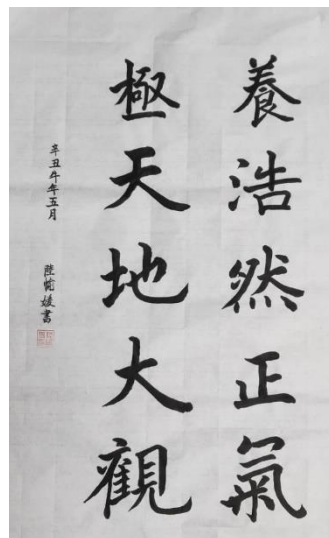 養浩然正氣
極天地大觀
辛丑牛年五月
陸愉媛書